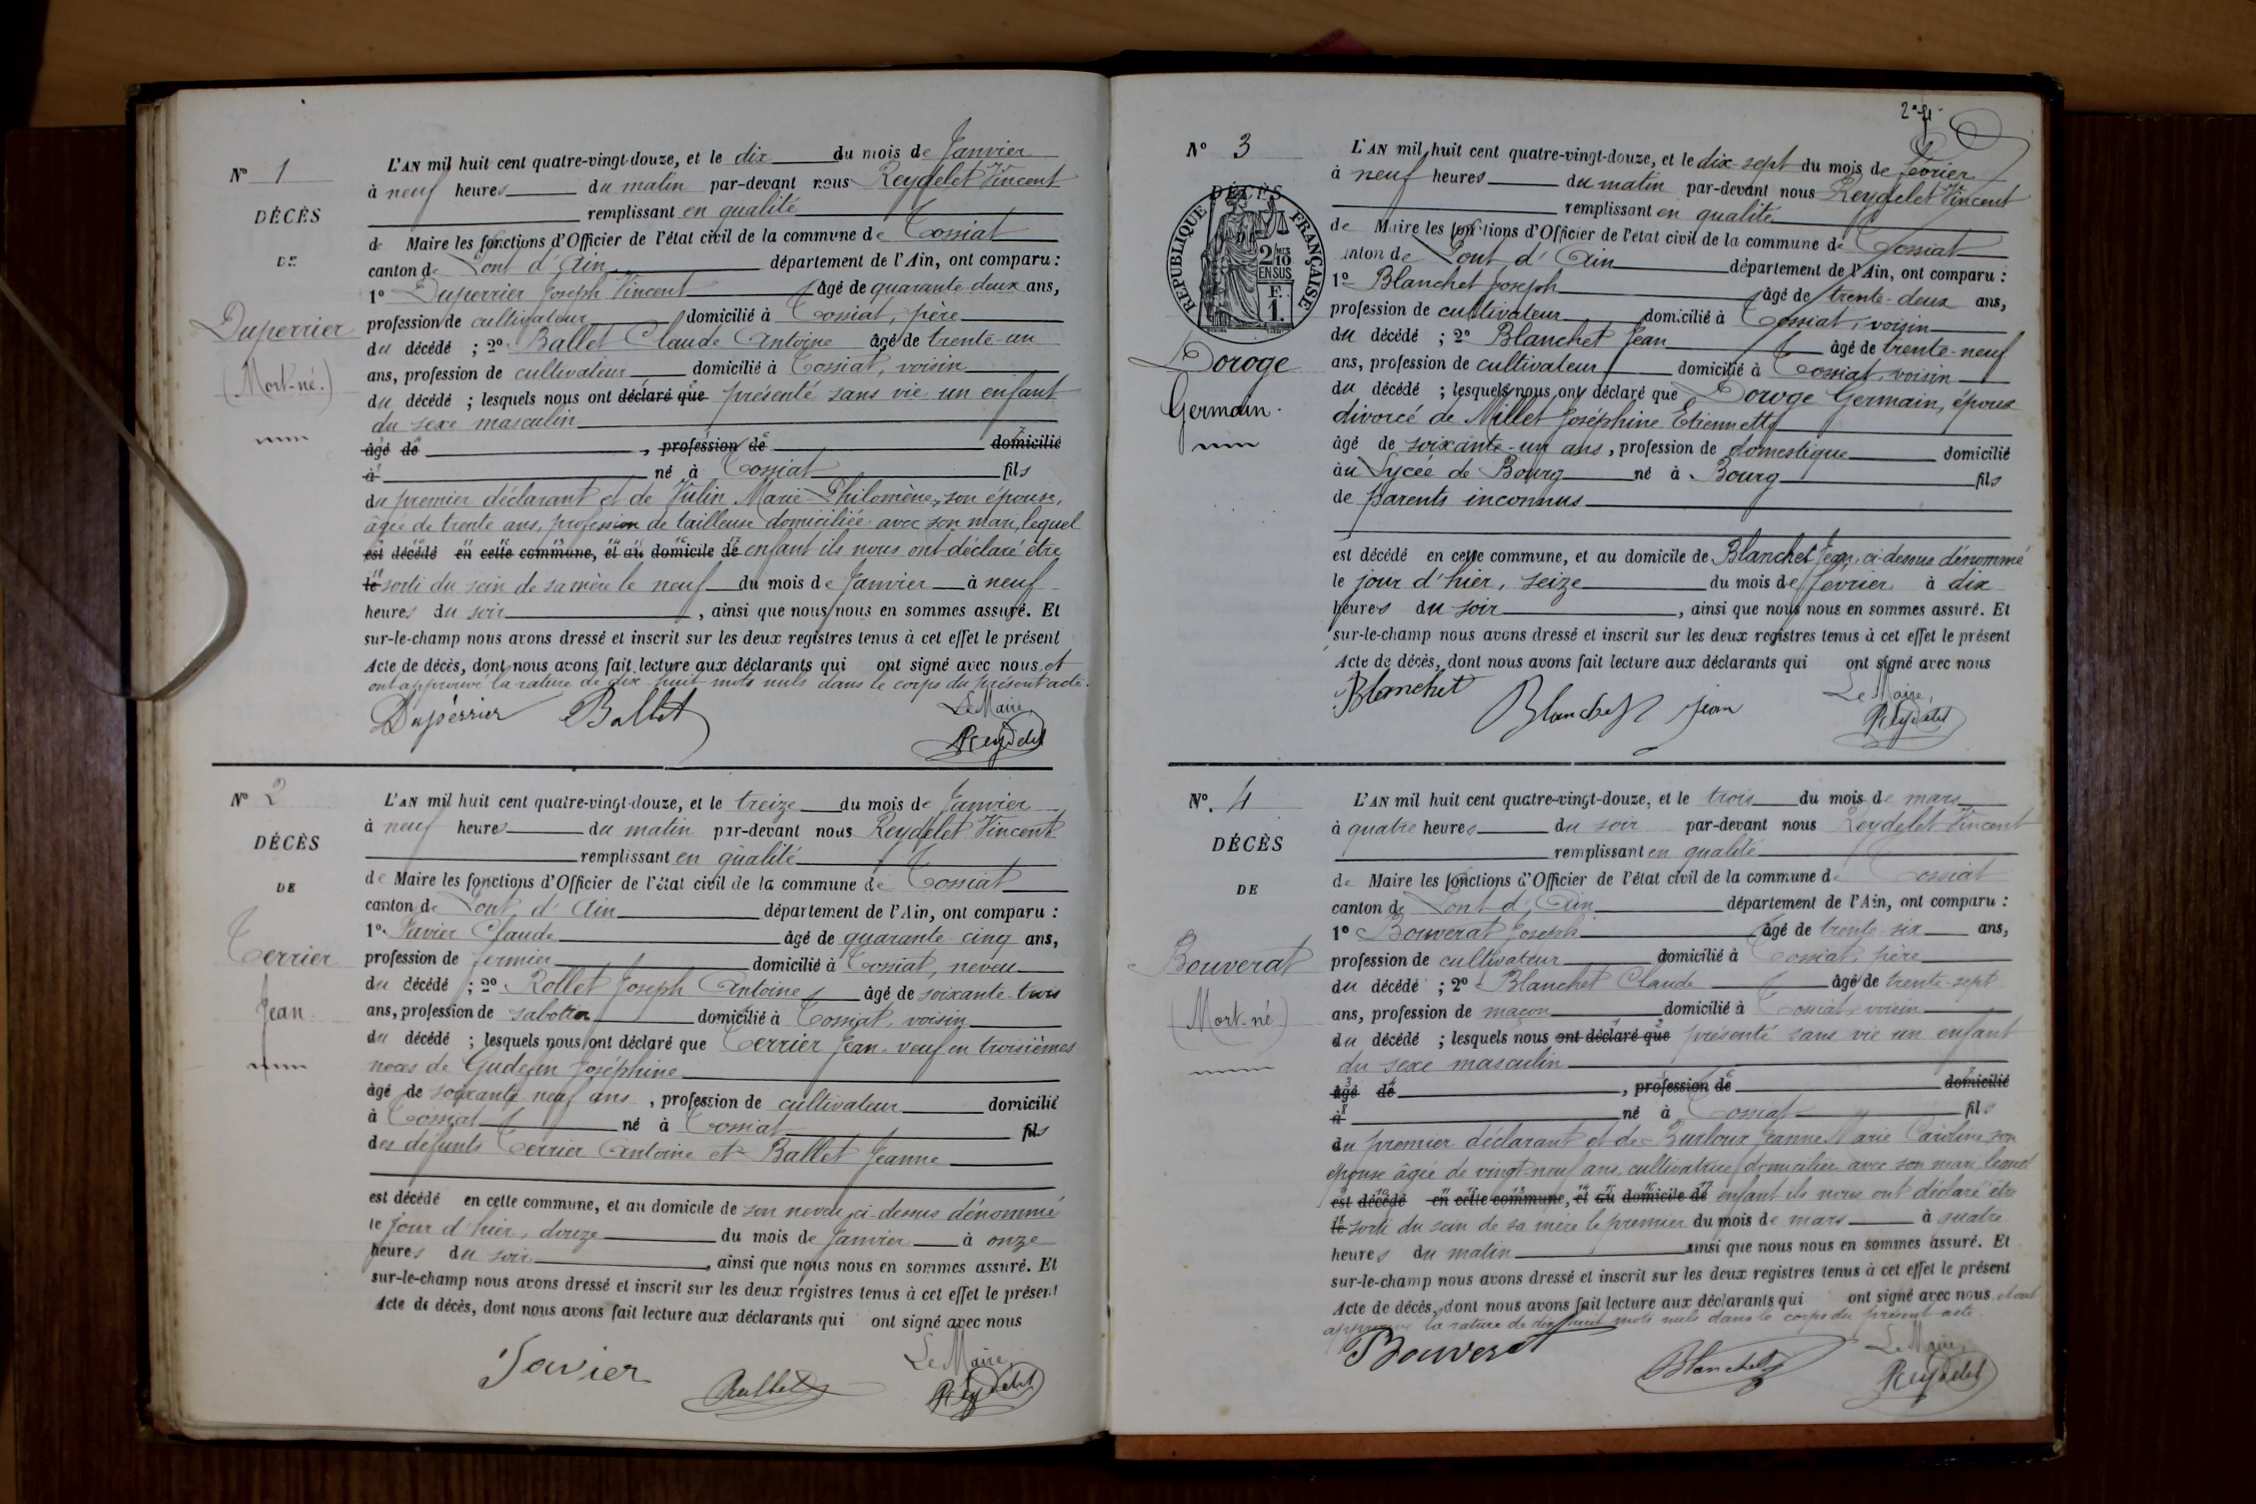 Nº 1
DÉCÈS
DE
Duperrier
(Mort-né.)
L'AN mil huit cent quatre-vingt-douze, et le dix du mois de Janvier
à neuf heures du matin par-devant nous Reydelet Vincent
remplissant en qualité
de Maire les fonctions d'Officier de l'état civil de la commune de Tossiat
canton de Pont d'Ain département de l'Ain, ont comparu :
1º Duperrier Joseph Vincent âgé de quarante-deux ans,
profession de cultivateur domicilié à Tossiat, père
du décédé ; 2º Ballet Claude Antoine âgé de trente-un
ans, profession de cultivateur domicilié à Tossiat, voisin
du décédé ; lesquels nous ont déclaré que présenté sans vie un enfant
du sexe masculin
âgé de , profession de domicilié
à né à Tossiat fils
du premier déclarant et de Vulin Marie Philomène, son épouse,
âgée de trente ans, profession de tailleuse domiciliée avec son mari, lequel
est décédé en cette commune, et au domicile de enfant ils nous ont déclaré être
le sorti du sein de sa mère le neuf du mois de Janvier à neuf
heures du soir , ainsi que nous nous en sommes assuré. Et
sur-le-champ nous avons dressé et inscrit sur les deux registres tenus à cet effet le présent
Acte de décès, dont nous avons fait lecture aux déclarants qui ont signé avec nous et
ont approuvé la rature de dix-huit mots nuls dans le corps du présent acte.
Duperrier Ballet
Le Maire,
Reydelet
Nº 2
DÉCÈS
DE
Terrier
Jean
L'AN mil huit cent quatre-vingt-douze, et le treize du mois de Janvier
à neuf heures du matin par-devant nous Reydelet Vincent
remplissant en qualité
de Maire les fonctions d'Officier de l'état civil de la commune de Tossiat
canton de Pont d'Ain département de l'Ain, ont comparu :
1º Javier Claude âgé de quarante-cinq ans,
profession de fermier domicilié à Tossiat, neveu
du décédé ; 2º Rollet Joseph Antoine âgé de soixante-trois
ans, profession de sabotier domicilié à Tossiat, voisin
du décédé ; lesquels nous ont déclaré que Terrier Jean, veuf en troisièmes
noces de Gudefin Joséphine
âgé de soixante neuf ans , profession de cultivateur domicilié
à Tossiat né à Tossiat fils
des défunts Terrier Antoine et Ballet Jeanne
est décédé en cette commune, et au domicile de son neveu, ci-dessus dénommé
le jour d'hier, douze du mois de Janvier à onze
heures du soir , ainsi que nous nous en sommes assuré. Et
sur-le-champ nous avons dressé et inscrit sur les deux registres tenus à cet effet le présent
Acte de décès, dont nous avons fait lecture aux déclarants qui ont signé avec nous
Javier Rollet
Le Maire,
Reydelet
Nº 3
DÉCÈS
RÉPUBLIQUE FRANÇAISE
2/10 EN SUS
F. 1.
Doroge
Germain.
L'AN mil huit cent quatre-vingt-douze, et le dix-sept du mois de février
à neuf heures du matin par-devant nous Reydelet Vincent
remplissant en qualité
de Maire les fonctions d'Officier de l'état civil de la commune de Tossiat
canton de Pont d'Ain département de l'Ain, ont comparu :
1º Blanchet Joseph âgé de trente-deux ans,
profession de cultivateur domicilié à Tossiat, voisin
du décédé ; 2º Blanchet Jean âgé de trente-neuf
ans, profession de cultivateur domicilié à Tossiat, voisin
du décédé ; lesquels nous ont déclaré que Doroge Germain, époux
divorcé de Millet Joséphine Etiennette
âgé de soixante-un ans, profession de domestique domicilié
au Lycée de Bourg né à Bourg fils
de parents inconnus
est décédé en cette commune, et au domicile de Blanchet Jean, ci-dessus dénommé
le jour d'hier, seize du mois de février à dix
heures du soir , ainsi que nous nous en sommes assuré. Et
sur-le-champ nous avons dressé et inscrit sur les deux registres tenus à cet effet le présent
Acte de décès, dont nous avons fait lecture aux déclarants qui ont signé avec nous
Blanchet Blanchet Jean
Le Maire,
Reydelet
Nº. 4
DÉCÈS
DE
Bouverat
(Mort-né)
L'AN mil huit cent quatre-vingt-douze, et le trois du mois de mars
à quatre heures du soir par-devant nous Reydelet Vincent
remplissant en qualité
de Maire les fonctions d'Officier de l'état civil de la commune de Tossiat
canton de Pont d'Ain département de l'Ain, ont comparu :
1º Bouverat Joseph âgé de trente-six ans,
profession de cultivateur domicilié à Tossiat, père
du décédé ; 2º Blanchet Claude âgé de trente-sept
ans, profession de maçon domicilié à Tossiat, voisin
du décédé ; lesquels nous ont déclaré que présenté sans vie un enfant
du sexe masculin
âgé de , profession de domicilié
à né à Tossiat fils
du premier déclarant et de Jeanne Marie Caroline, son
épouse âgée de vingt-neuf ans, cultivatrice, domiciliée avec son mari, lequel
est décédé en cette commune, et au domicile de enfant ils nous ont déclaré être
le sorti du sein de sa mère le premier du mois de mars à quatre
heures du matin ainsi que nous nous en sommes assuré. Et
sur-le-champ nous avons dressé et inscrit sur les deux registres tenus à cet effet le présent
Acte de décès, dont nous avons fait lecture aux déclarants qui ont signé avec nous et ont
approuvé la rature de dix-huit mots nuls dans le corps du présent acte.
Bouverat Blanchet
Le Maire,
Reydelet